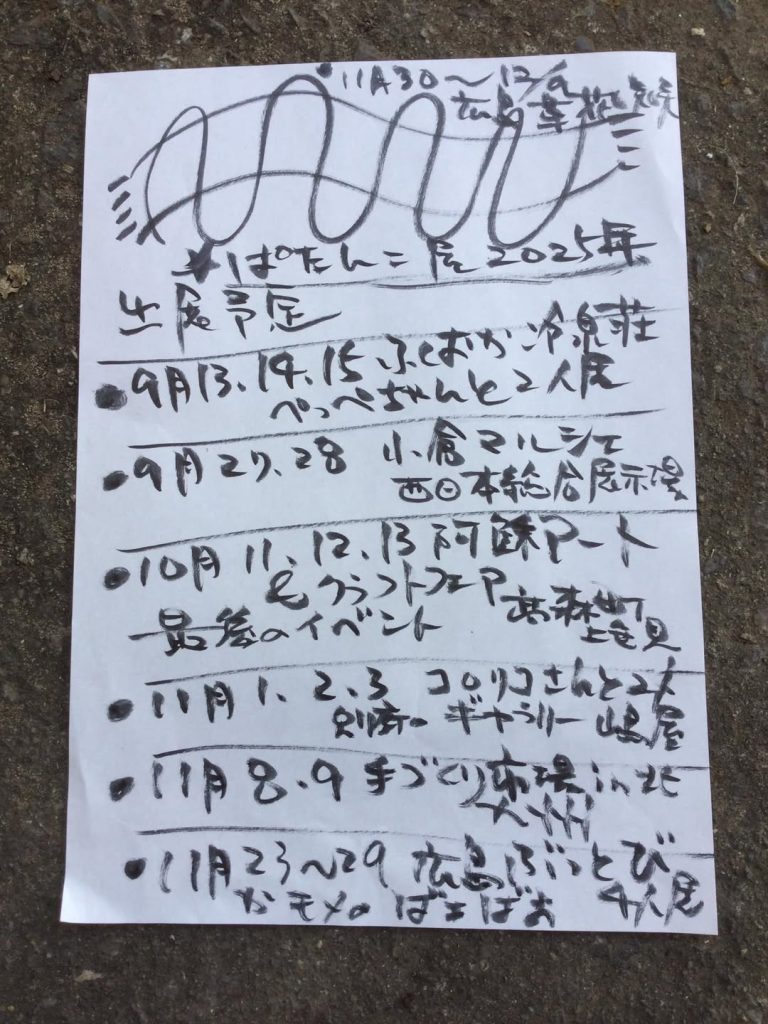 •11月30～12/9
広島
★ぱたんこ屋2025年
出展予定
•9月13.14.15 ふくおか冷泉荘
ぺっぺちゃんと2人展
•9月27.28 小倉マルシェ
西日本総合展示場
•10月11.12.13阿蘇アート
&クラフトフェア高森町
最後のイベント 上色見
•11月1.2.3 コロリコさんと2人
別府の ギャラリー 嶋屋
•11月8.9 手づくり市場in北
九州
•11月23～29 広島ぶらっとぴ
カモメのばぁばぁ 4人展